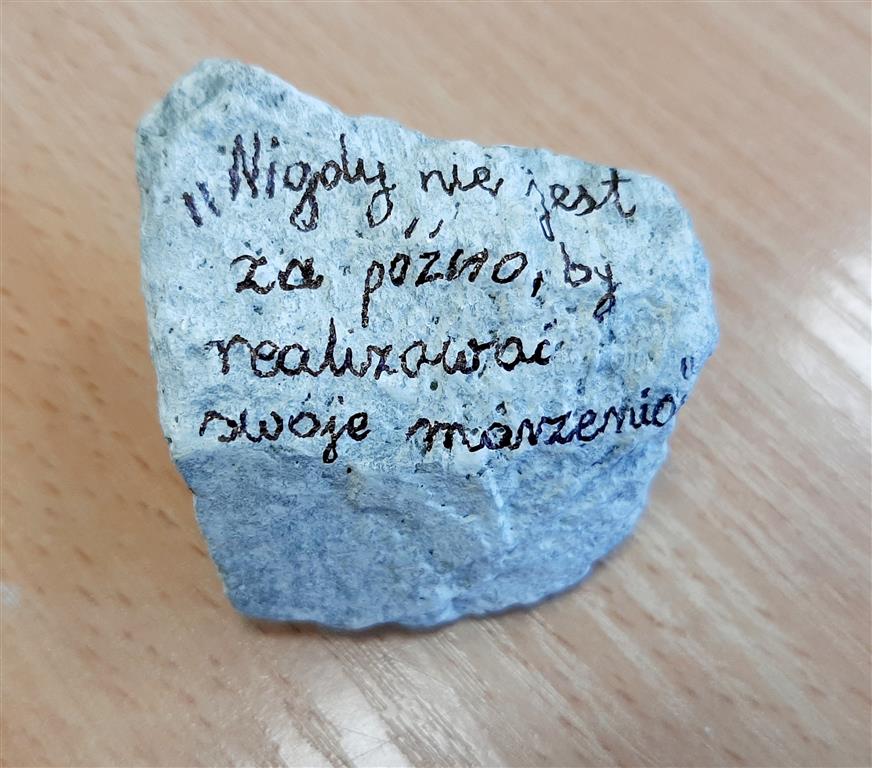 „Nigdy nie jest
za późno, by
realizować
swoje marzenia"